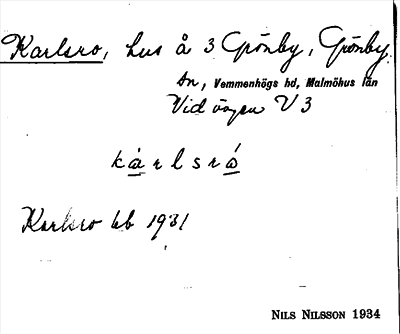 Karlsro, hus å 3 Grönby, Grönby
sn, Vemmenhögs hd, Malmöhus län
Vid vägen V 3
kȧrlsrȧ́
Karlsro kb 1931
NILS NILSSON 1934